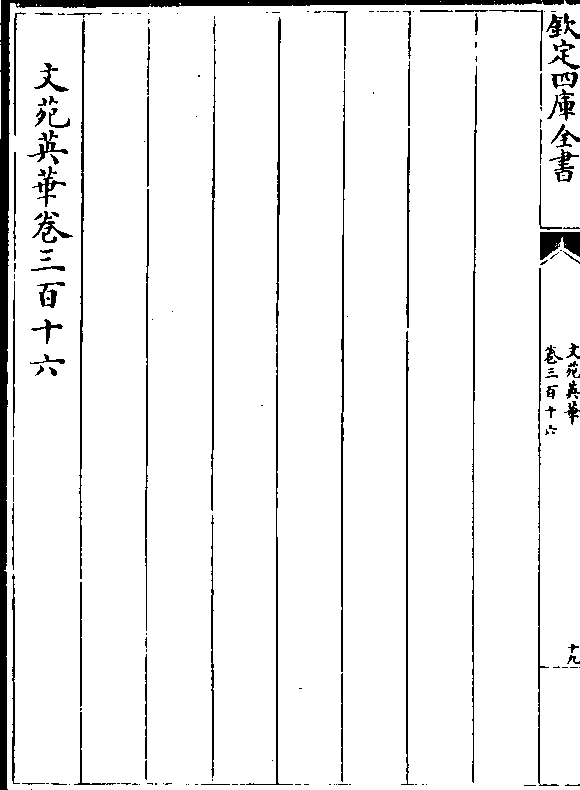 欽定四庫全書
文苑英華
卷三百十六
十九
文苑英華卷三百十六